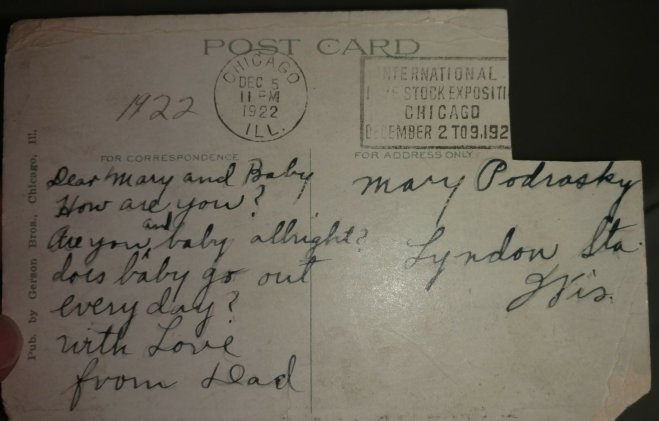 POST CARD
CHICAGO
DEC 5
11 PM
1922
ILL.
INTERNATIONAL
LIVE STOCK EXPOSITI
CHICAGO
DECEMBER 2 TO 9.192
1922
FOR CORRESPONDENCE
FOR ADDRESS ONLY
Pub. by Gerson Bros., Chicago, Ill.
Dear Mary and Baby
How are you?
Are you and baby allright?
does baby go out
every day?
with Love
from Dad
Mary Podrasky
Lyndon Sta.
Wis.